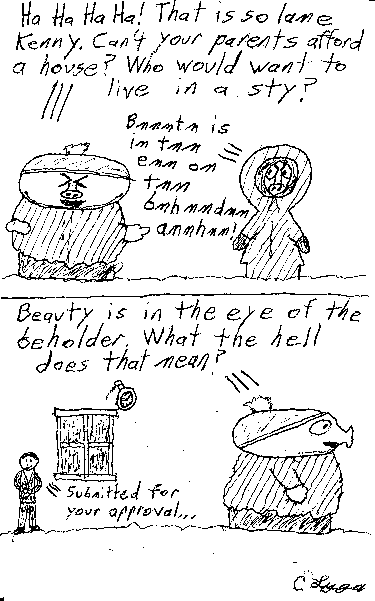 Ha Ha Ha Ha! That is so lame
Kenny. Can't your parents afford
a house? Who would want to
live in a sty?
Bnnmtn is
in tnn
enn on
tnn
bnhnmdnn
annhnn!
Beauty is in the eye of the
beholder. What the hell
does that mean?
Submitted for
your approval...